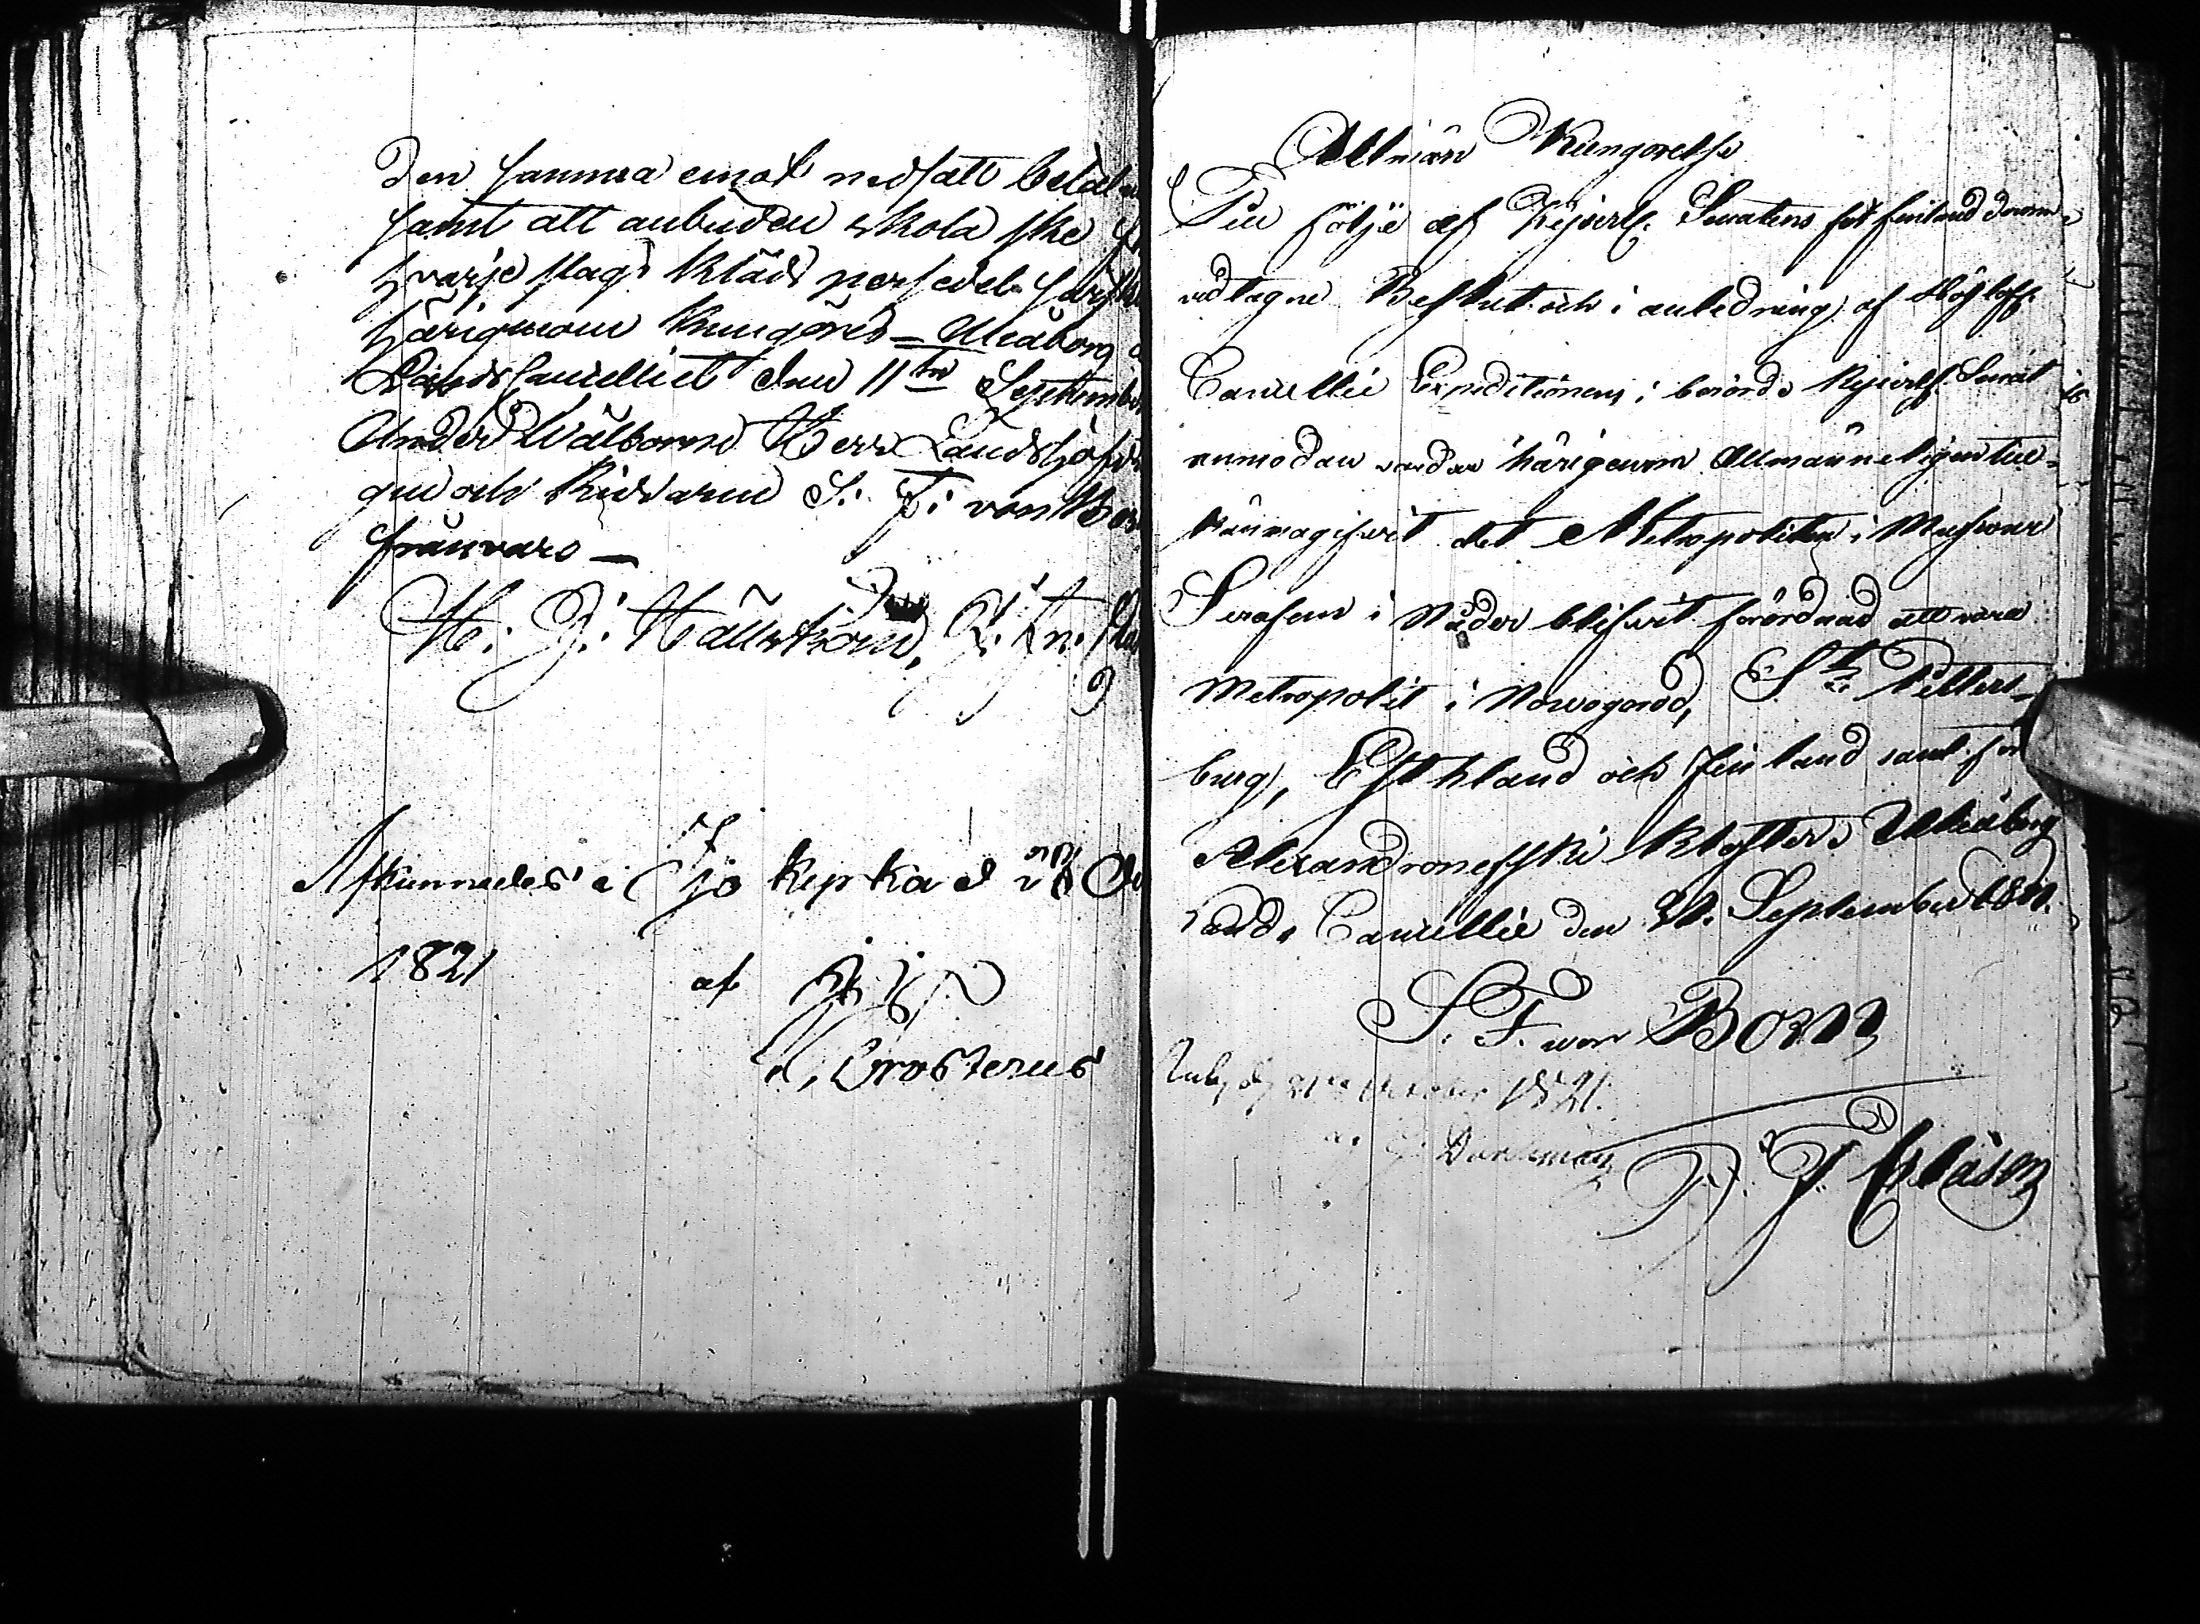 den samma emot nedsatt betal
samt att anbuden skola ske
hvarje slags Kläds persedel särsk
härigenom kungöres – Uleåborg
Landscancelliet den 11te September
Under Wälborne Herr Landshöfdin
gen och Riddaren S: F: von Bor
frånvaro –
H: J: Hällström,
Afkunnades i Ijo kyrka d
1821 af
Frosterus
Allmän Kungörelse
Till följe af Kejserl. Senatens för Finland derom
vidtagne Beslut och i anledning af Höglofl.
Cancellie Expeditionens i berörde Kejserl. Senat
anmodan varder härigenom Allmänneligen till-
kännagifwit det Metropoliten i Moskow
Serafim i Nåder blifwit förordnad att vara
Metropolit i Nowogorod, St Petters-
burg, Esthland och Finland samt för
Alexandronefski Kloster. Uleåborg
Lands Cancellie den September 1821.
S. F. von Born
October 1821.
J. Clasen